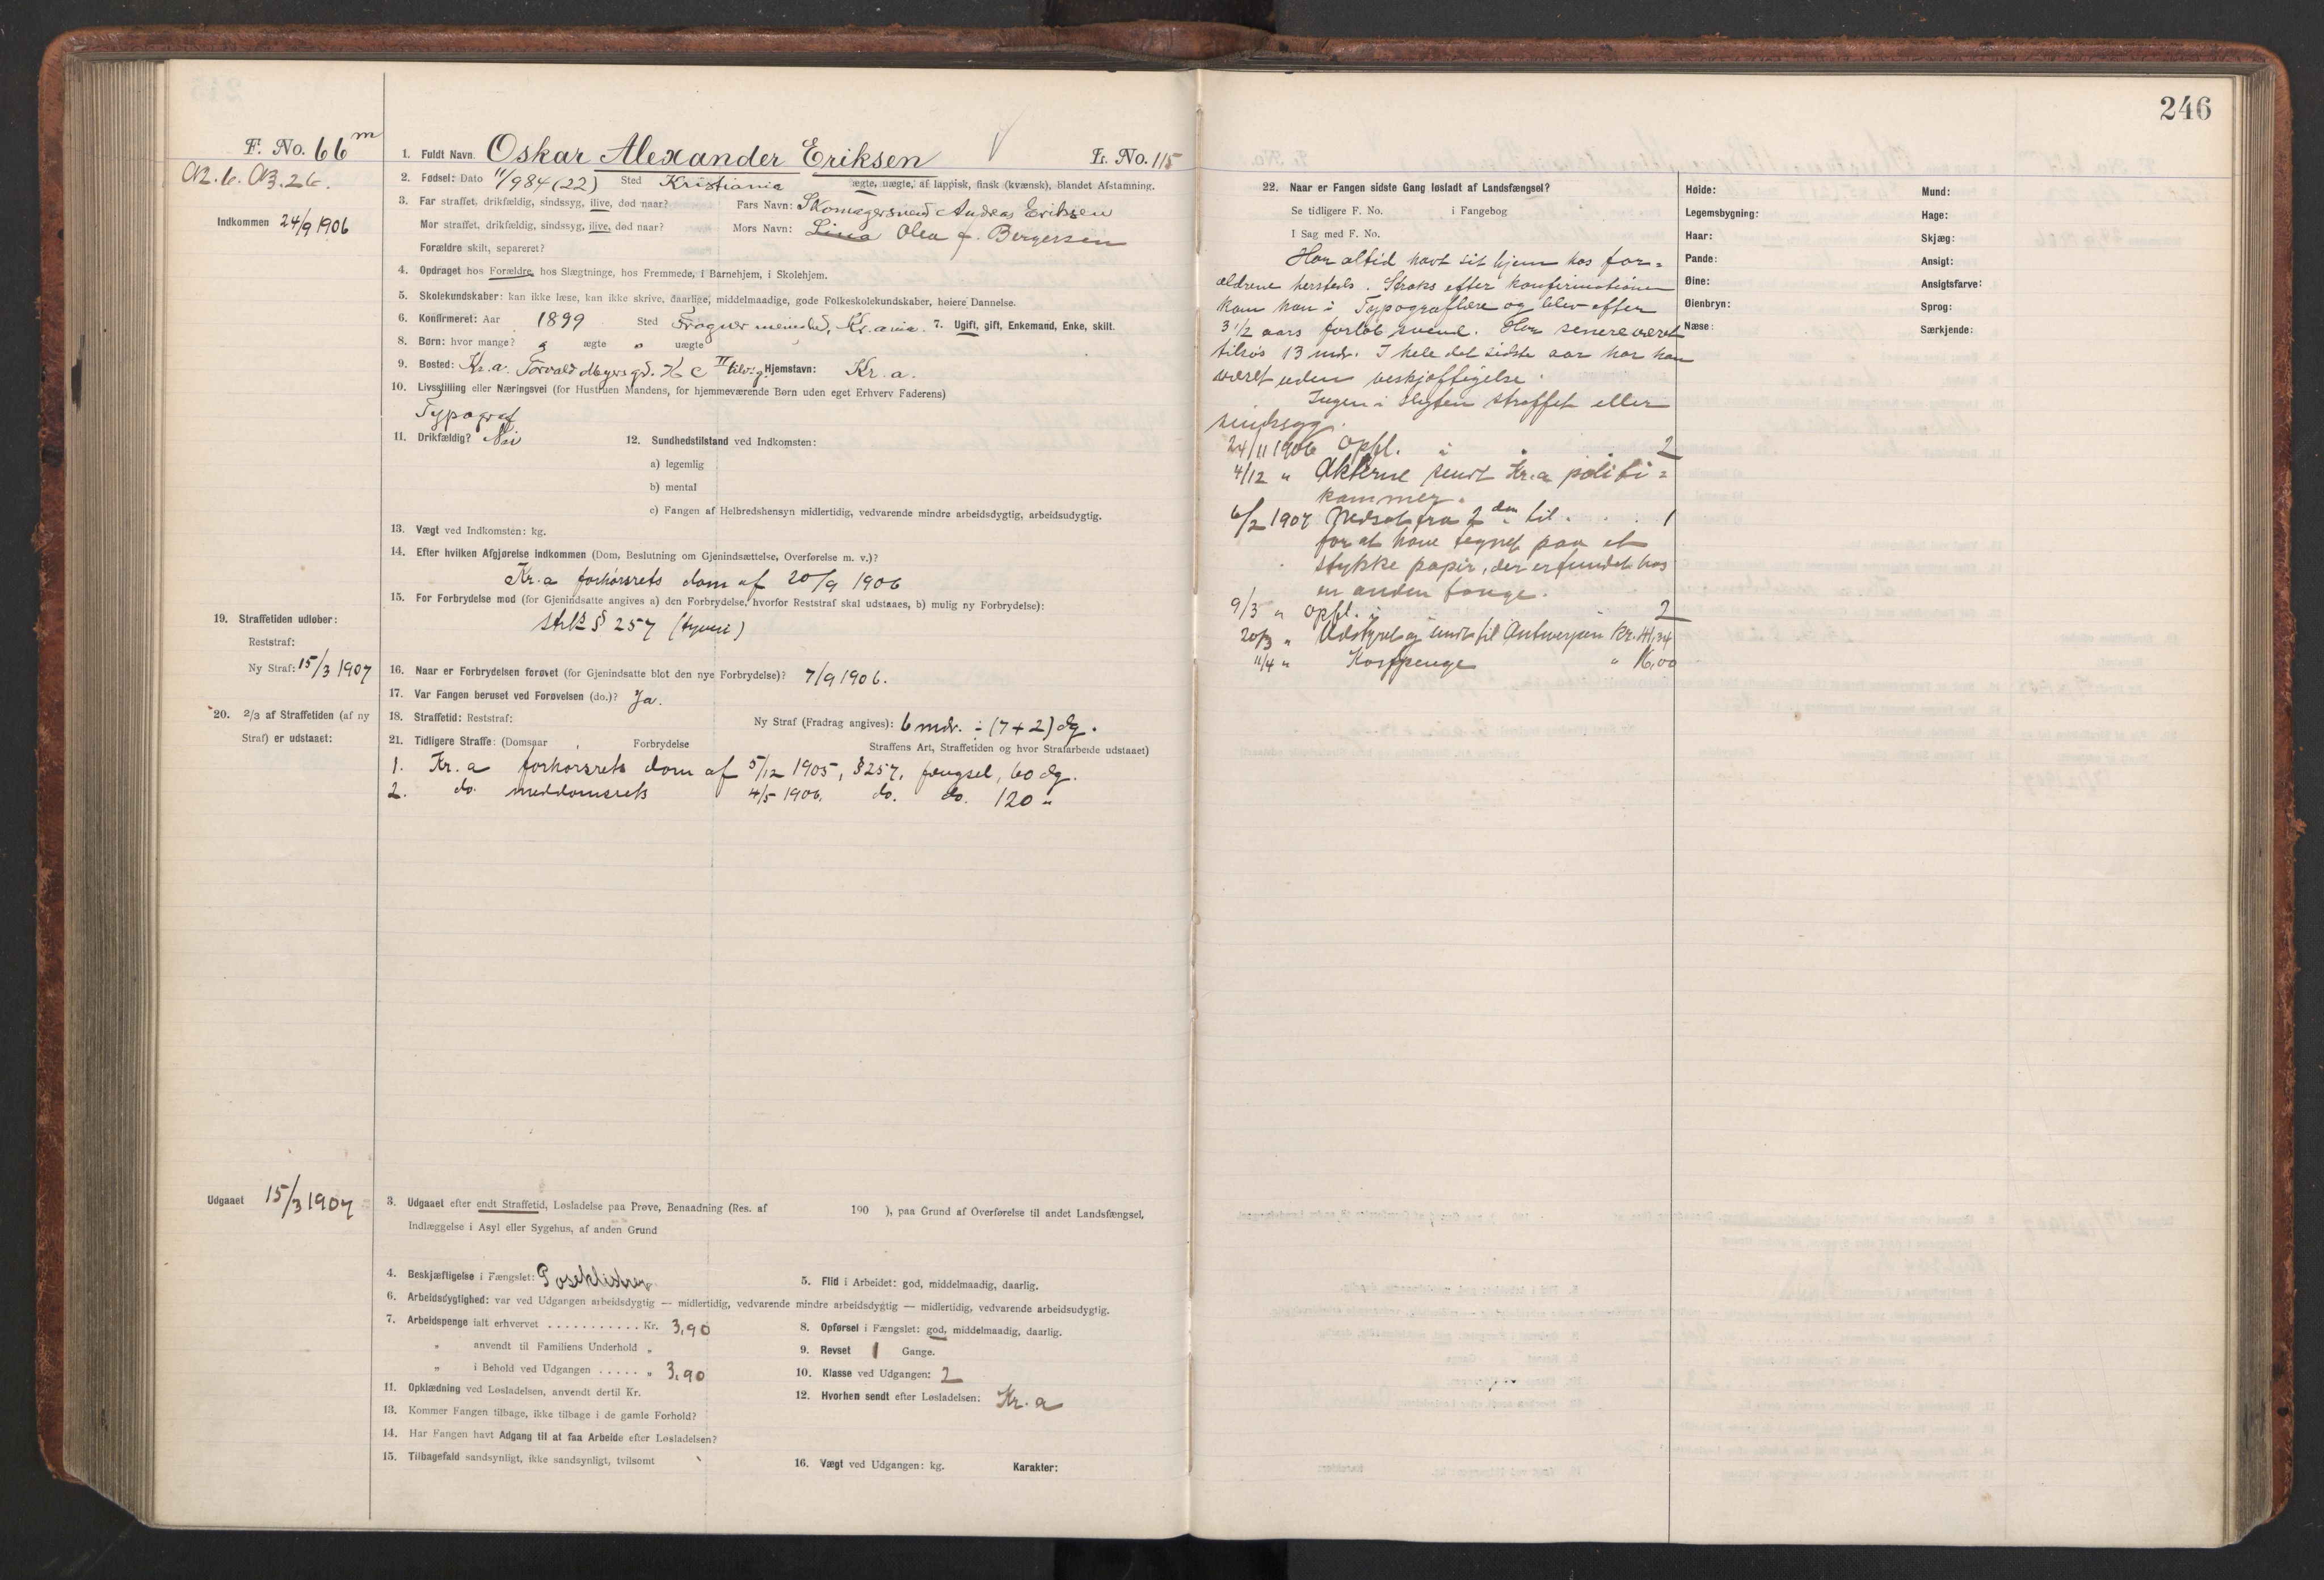 246
F. No. 66 m
A2.6. A3.26.
1. Fuldt Navn. Oskar Alexander Eriksen
L. No. 115
2. Fødsel: Dato 11/9 84 (22) Sted Kristiania ægte, uægte, af lappisk, finsk (kvænsk), blandet Afstamning.
Indkommen 24/9 1906
3. Far straffet, drikfældig, sindssyg, ilive, død naar? Fars Navn: Skomagersvend Andreas Eriksen
Mor straffet, drikfældig, sindssyg, ilive, død naar? Mors Navn: Lina Olea f. Bergersen
Forældre skilt, separeret?
4. Opdraget hos Forældre, hos Slægtninge, hos Fremmede, i Barnehjem, i Skolehjem.
5. Skolekundskaber: kan ikke læse, kan ikke skrive, daarlige, middelmaadige, gode Folkeskolekundskaber, høiere Dannelse.
6. Konfirmeret: Aar 1899 Sted Frogner menighed, Kr.ania. 7. Ugift, gift, Enkemand, Enke, skilt.
8. Børn: hvor mange? o ægte o uægte
9. Bosted: Kr.a. Torvald Meyersgd. II Hjemstavn: Kr.a.
10. Livsstilling eller Næringsvei (for Hustruen Mandens, for hjemmeværende Børn uden eget Erhverv Faderens)
Typograf
11. Drikfældig? Nei 12. Sundhedstilstand ved Indkomsten:
a) legemlig
b) mental
c) Fangen af Helbredshensyn midlertidig, vedvarende mindre arbeidsdygtig, arbeidsudygtig.
13. Vægt ved Indkomsten: kg.
14. Efter hvilken Afgjørelse indkommen (Dom, Beslutning om Gjenindsættelse, Overførelse m. v.)?
Kr.a forhørsrets dom af 20/9 1906
15. For Forbrydelse mod (for Gjenindsatte angives a) den Forbrydelse, hvorfor Reststraf skal udstaaes, b) mulig ny Forbrydelse):
strls § 257 (tyveri)
19. Straffetiden udløber:
Reststraf:
Ny Straf: 15/3 1907
16. Naar er Forbrydelsen forøvet (for Gjenindsatte blot den nye Forbrydelse)? 7/9 1906.
17. Var Fangen beruset ved Forøvelsen (do.)? Ja.
20. 2/3 af Straffetiden (af ny
Straf) er udstaaet:
18. Straffetid: Reststraf: Ny Straf (Fradrag angives): 6 mdr. ÷ (7+2) dg.
21. Tidligere Straffe: (Domsaar Forbrydelse Straffens Art, Straffetiden og hvor Strafarbeide udstaaet)
1. Kr.a forhørsrets dom af 5/12 1905, § 257, fængsel, 60 dg.
2. do. meddomsrets 4/5 1906. do. do. 120 "
Udgaaet 15/3 1907
3. Udgaaet efter endt Straffetid, Løsladelse paa Prøve, Benaadning (Res. af 190 ), paa Grund af Overførelse til andet Landsfængsel,
Indlæggelse i Asyl eller Sygehus, af anden Grund
4. Beskjæftigelse i Fængslet: Poseklistrer 5. Flid i Arbeidet: god, middelmaadig, daarlig.
6. Arbeidsdygtighed: var ved Udgangen arbeidsdygtig — midlertidig, vedvarende mindre arbeidsdygtig — midlertidig, vedvarende arbeidsudygtig.
7. Arbeidspenge ialt erhvervet . . . . . . . . . . . Kr. 3,90 8. Opførsel i Fængslet: god, middelmaadig, daarlig.
" anvendt til Familiens Underhold " 9. Revset 1 Gange.
" i Behold ved Udgangen . . . . . " 3,90 10. Klasse ved Udgangen: 2
11. Opklædning ved Løsladelsen, anvendt dertil Kr. 12. Hvorhen sendt efter Løsladelsen: Kr.a
13. Kommer Fangen tilbage, ikke tilbage i de gamle Forhold?
14. Har Fangen havt Adgang til at faa Arbeide efter Løsladelsen?
15. Tilbagefald sandsynligt, ikke sandsynligt, tvilsomt
16. Vægt ved Udgangen: kg. Karakter:
22. Naar er Fangen sidste Gang løsladt af Landsfængsel?
Se tidligere F. No. i Fangebog
I Sag med F. No.
Har altid havt sit hjem hos for=
ældrene hersteds. Straks efter konfirmationen
kom han i Typograflære og blev efter
3 1/2 aars forløb svend. Har senere været
tilsøs 13 mdr. I hele det sidste aar har han
været uden beskjæftigelse.
Ingen i slegten straffet eller
sindssyg.
24/11 1906 Opfl. i 2
4/12 " Akterne sendt Kr.a politi=
kammer.
6/2 1907 Nedsat fra 2den til 1
for at have tegnet paa et
stykke papir, der er fundet hos
en anden fange.
9/3 " Opfl. i 2
20/3 " Udstyret og sendt til Antwerpen Kr. 41,34
11/4 " Kostpenge " 16,00
Høide:
Legemsbygning:
Haar:
Pande:
Øine:
Øienbryn:
Næse:
Mund:
Hage:
Skjæg:
Ansigt:
Ansigtsfarve:
Sprog:
Særkjende: